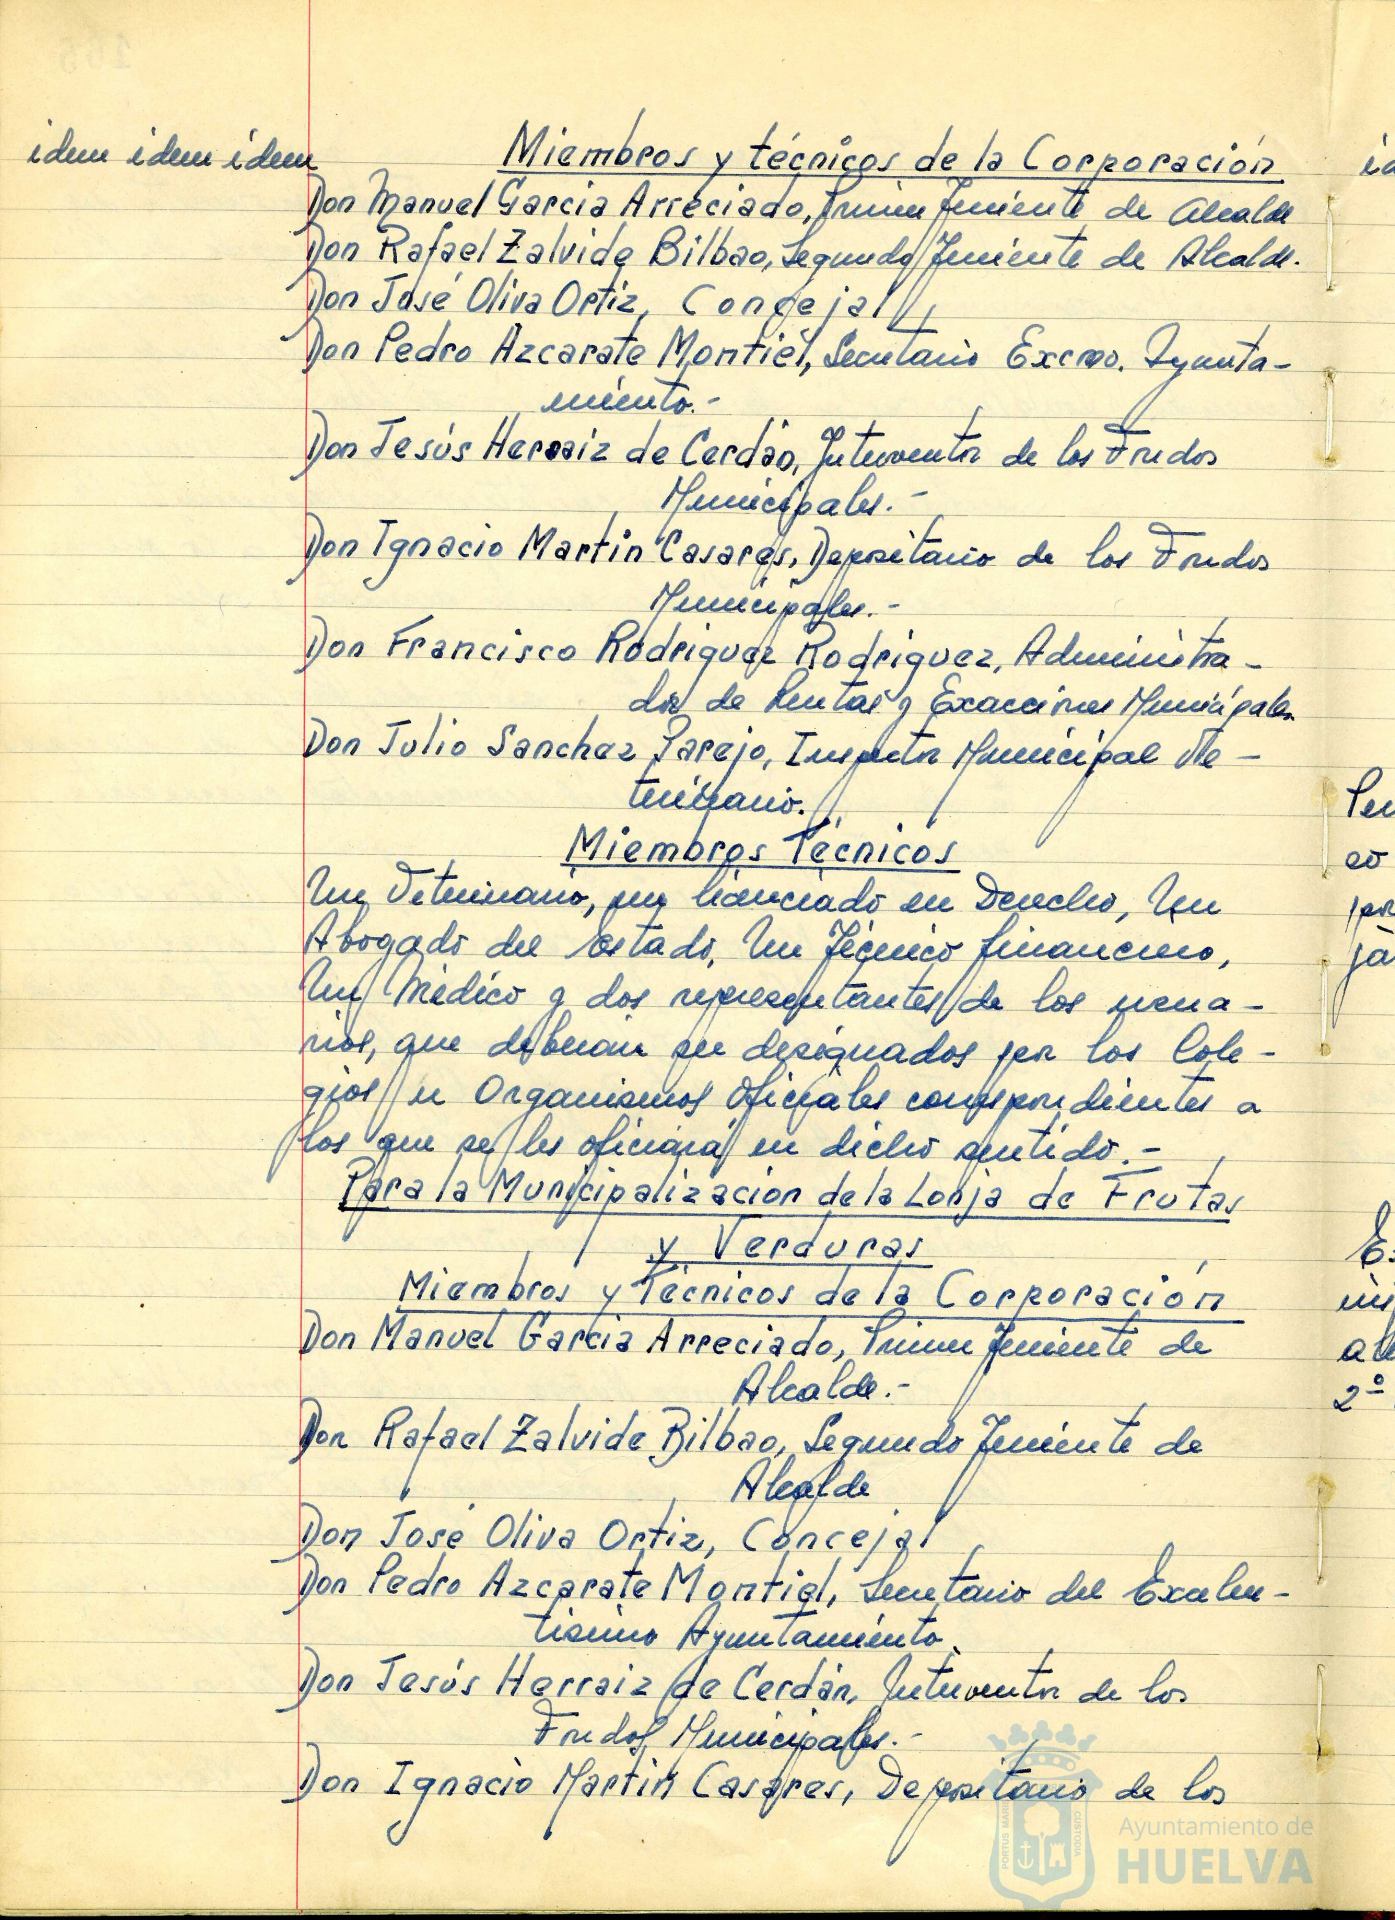 idem idem idem
Miembros y técnicos de la Corporación
Don Manuel Garcia Arreciado, Primer Teniente de Alcalde
Don Rafael Zalvide Bilbao, Segundo Teniente de Alcalde.
Don José Oliva Ortiz, Concejal
Don Pedro Azcarate Montiel, Secretario Excmo. Ayunta-
miento.-
Don Jesús Herraiz de Cerdán, Interventor de los Fondos
Municipales.-
Don Ignacio Martin Casares, Depositario de los Fondos
Municipales.-
Don Francisco Rodriguez Rodriguez, Administra-
dor de Rentas y Exacciones Municipales
Don Julio Sanchez Parejo, Inspector Municipal Ve-
terinario.
Miembros Técnicos
Un Veterinario, un licenciado en Derecho, Un
Abogado del Estado, Un Técnico financiero,
Un Médico y dos representantes de los usua-
rios, que deberán ser designados por los Cole-
gios u Organismos Oficiales correspondientes a
los que se les oficiará en dicho sentido.-
Para la Municipalización de la Lonja de Frutas
y Verduras
Miembros y Técnicos de la Corporación
Don Manuel Garcia Arreciado, Primer Teniente de
Alcalde.-
Don Rafael Zalvide Bilbao, Segundo Teniente de
Alcalde
Don José Oliva Ortiz, Concejal
Don Pedro Azcarate Montiel, Secretario del Excelen-
tisimo Ayuntamiento.
Don Jesús Herraiz de Cerdán, Interventor de los
Fondos Municipales.-
Don Ignacio Martin Casares, Depositario de los
PORTUS MARIS CUSTODIA
Ayuntamiento de
HUELVA